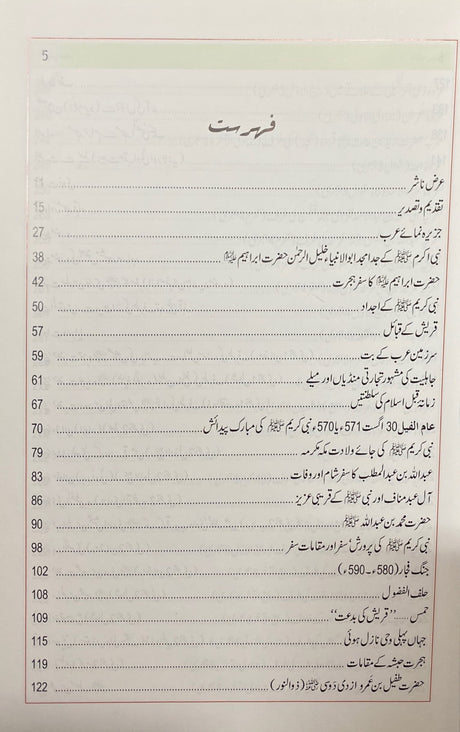 5
فہرست
عرض ناشر 11
تقدیم و تصدیر 15
جزیرہ نمائے عرب 27
نبی اکرم ﷺ کے جد امجد ابوالانبیاء خلیل الرحمٰن حضرت ابراہیم علیہ السلام 38
حضرت ابراہیم علیہ السلام کا سفر ہجرت 42
نبی کریم ﷺ کے اجداد 50
قریش کے قبائل 57
سرزمین عرب کے بت 59
جاہلیت کی مشہور تجارتی منڈیاں اور میلے 61
زمانۂ قبل اسلام کی سلطنتیں 67
عام الفیل 30 اگست 571ء یا 570ء نبی کریم ﷺ کی مبارک پیدائش 70
نبی کریم ﷺ کی جائے ولادت مکہ مکرمہ 79
عبداللہ بن عبدالمطلب کا سفر شام اور وفات 83
آل عبد مناف اور نبی ﷺ کے قریبی عزیز 86
حضرت محمد بن عبداللہ ﷺ 90
نبی کریم ﷺ کی پرورش، سفر اور مقامات سفر 98
جنگ فجار (580ء۔590ء) 102
حلف الفضول 108
حمس ..... ’’قریش کی بدعت‘‘ 109
جہاں پہلی وحی نازل ہوئی 115
ہجرت حبشہ کے مقامات 119
حضرت طفیل بن عمرو ازدی دوسی (ذوالنور) 122